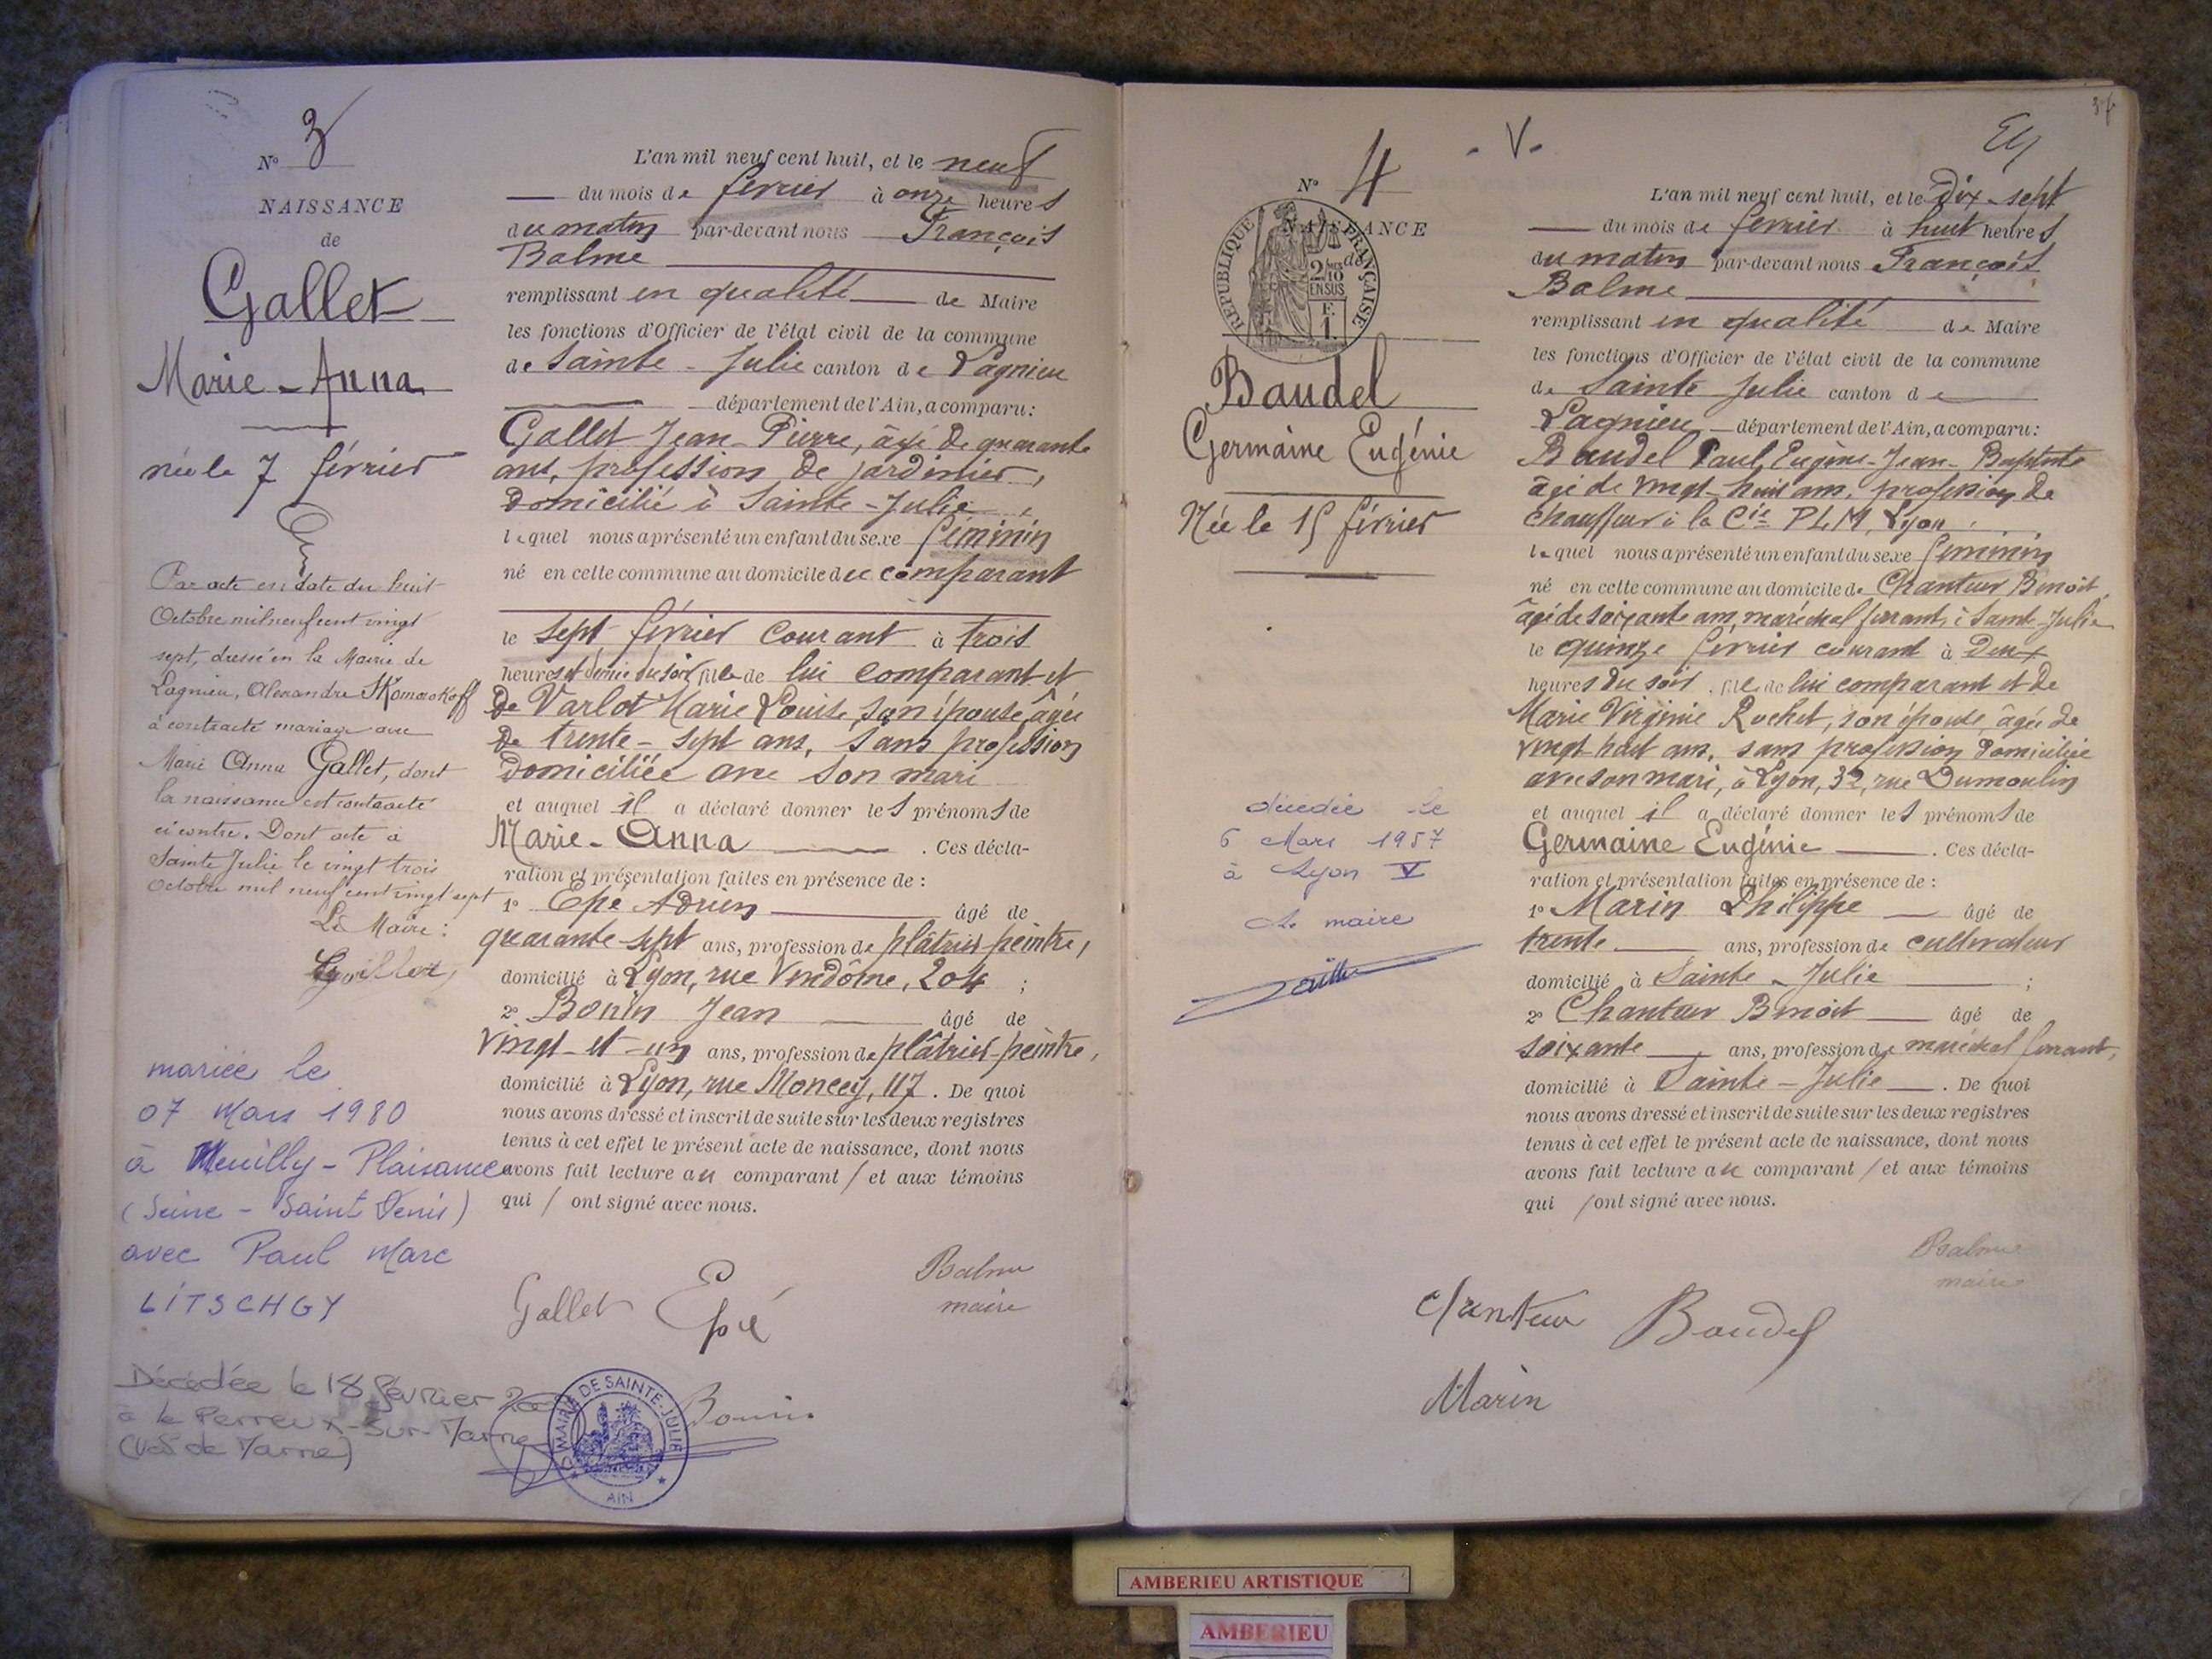 N° 3
NAISSANCE
de
Gallet
Marie-Anna
née le 7 février
Par acte en date du huit
Octobre mil neuf cent vingt
sept, dressé en la Mairie de
Lagnieu, Alexandre SKomorokoff
à contracté mariage avec
Marie Anna Gallet, dont
la naissance est contracté
ci contre. Dont acte à
Sainte Julie le vingt trois
octobre mil neuf cent vingt sept
Le Maire :
mariée le
07 Mars 1980
à Neuilly-Plaisance
(Seine-Saint Denis)
avec Paul Marc
LITSCHGY
Décédée le 18 février
à le Perreux-Sur-Marne
(Val de Marne)
L'an mil neuf cent huit, et le neuf
du mois de février à onze heures
du matin par-devant nous François
Balme
remplissant en qualité de Maire
les fonctions d'Officier de l'état civil de la commune
de Sainte-Julie canton de Lagnieu
département de l'Ain, a comparu :
Gallet Jean-Pierre, âgé de quarante
ans, profession de jardinier,
domicilié à Sainte-Julie,
lequel nous a présenté un enfant du sexe féminin
né en cette commune au domicile du comparant
le sept février courant à trois
heures et demie du soir fille de lui comparant et
de Varlot Marie Louise, son épouse, âgée
de trente-sept ans, sans profession
domiciliée avec son mari
et auquel il a déclaré donner les prénoms de
Marie-Anna. Ces décla-
ration et présentation faites en présence de :
1° Epé Adrien âgé de
quarante-sept ans, profession de plâtrier-peintre,
domicilié à Lyon, rue Vendôme, 204 ;
2° Bonin Jean âgé de
vingt-et-un ans, profession de plâtrier-peintre,
domicilié à Lyon, rue Moncey, 117. De quoi
nous avons dressé et inscrit de suite sur les deux registres
tenus à cet effet le présent acte de naissance, dont nous
avons fait lecture au comparant / et aux témoins
qui / ont signé avec nous.
Gallet Epé Balme
maire
Bonin
MAIRIE DE SAINTE-JULIE
AIN
N° 4
- V -
NAISSANCE
de
RÉPUBLIQUE FRANÇAISE
2/10 EN SUS
F. 1.
Baudel
Germaine Eugénie
Née le 15 février
décédée le
6 Mars 1957
à Lyon V
Le maire
L'an mil neuf cent huit, et le Dix-sept
du mois de février à huit heures
du matin par-devant nous François
Balme
remplissant en qualité de Maire
les fonctions d'Officier de l'état civil de la commune
de Sainte-Julie canton de
Lagnieu département de l'Ain, a comparu :
Baudel Paul, Eugène-Jean-Baptiste
âgé de vingt-huit ans, profession de
Chauffeur à la Cie PLM, Lyon,
lequel nous a présenté un enfant du sexe féminin
né en cette commune au domicile de Chanteur Benoit,
âgé de soixante ans, maréchal ferrant, à Sainte-Julie
le quinze février courant à Deux
heures du soir, fille de lui comparant et de
Marie Virginie Rochet, son épouse, âgée de
vingt huit ans, sans profession domiciliée
avec son mari, à Lyon, 32, rue Dumoulin
et auquel il a déclaré donner les prénoms de
Germaine Eugénie. Ces décla-
ration et présentation faites en présence de :
1° Marin Philippe âgé de
trente ans, profession de cultivateur
domicilié à Sainte-Julie ;
2° Chanteur Benoit âgé de
soixante ans, profession de maréchal ferrant,
domicilié à Sainte-Julie. De quoi
nous avons dressé et inscrit de suite sur les deux registres
tenus à cet effet le présent acte de naissance, dont nous
avons fait lecture au comparant / et aux témoins
qui / ont signé avec nous.
Balme
maire
Chanteur Baudel
Marin
AMBERIEU ARTISTIQUE
AMBERIEU